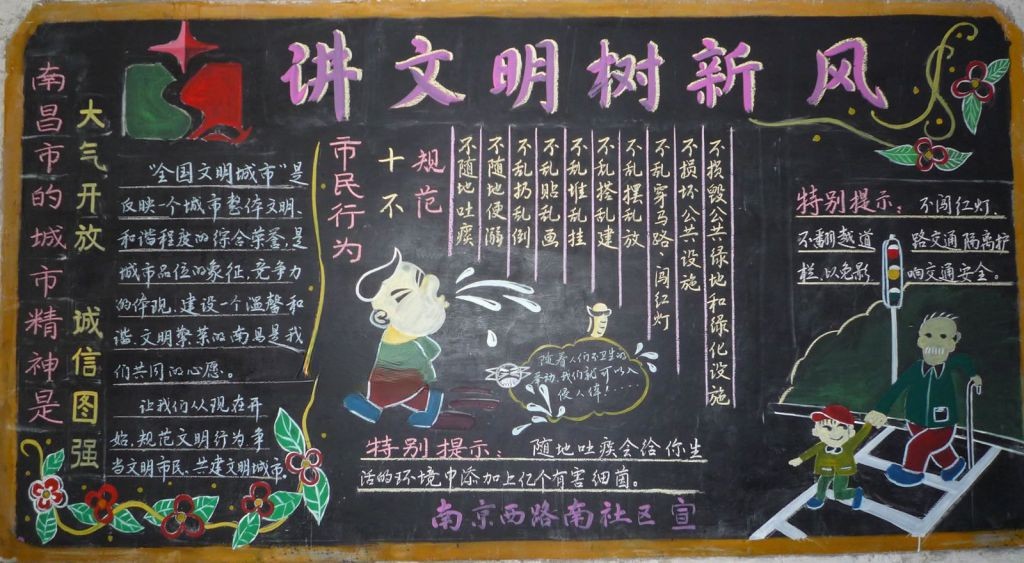 讲文明树新风
南昌市的城市精神是
大气开放 诚信图强
“全国文明城市”是
反映一个城市整体文明、
和谐程度的综合荣誉,是
城市品位的象征,竞争力
的体现。建设一个温馨和
谐、文明繁荣的南昌是我
们共同的心愿。
让我们从现在开
始,规范文明行为争
当文明市民、共建文明城市。
市民行为
十不
规范
不随地吐痰
不随地便溺
不乱扔乱倒
不乱贴乱画
不乱堆乱挂
不乱搭乱建
不乱摆乱放
不乱穿马路、闯红灯
不损坏公共设施
不损毁公共绿地和绿化设施
随着人们不卫生的
举动,我们就可以入
侵人体!....
特别提示:随地吐痰会给你生
活的环境中添加上亿个有害细菌。
特别提示:不闯红灯、
不翻越道路交通隔离护
栏,以免影响交通安全。
南京西路南社区宣